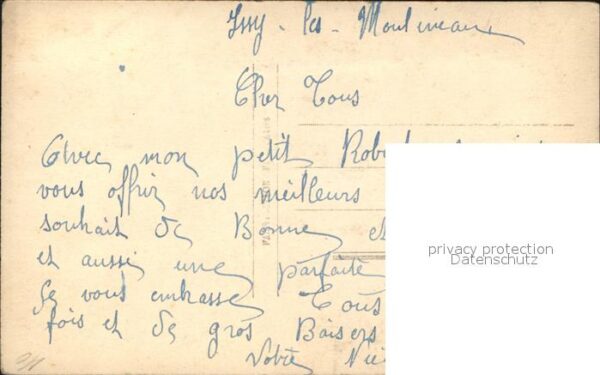 Issy - les - Moulineaux
Cher Tous
Avec mon petit
vous offrir nos meilleurs
souhait de Bonne et
et aussi une parfaite
Je vous embrasse Tous
fois et de gros Baisers
Votre
privacy protection
Datenschutz